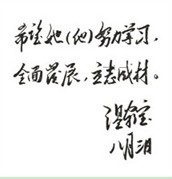 希望她(他)努力学习，
全面发展，立志成材。
温家宝
八月三日